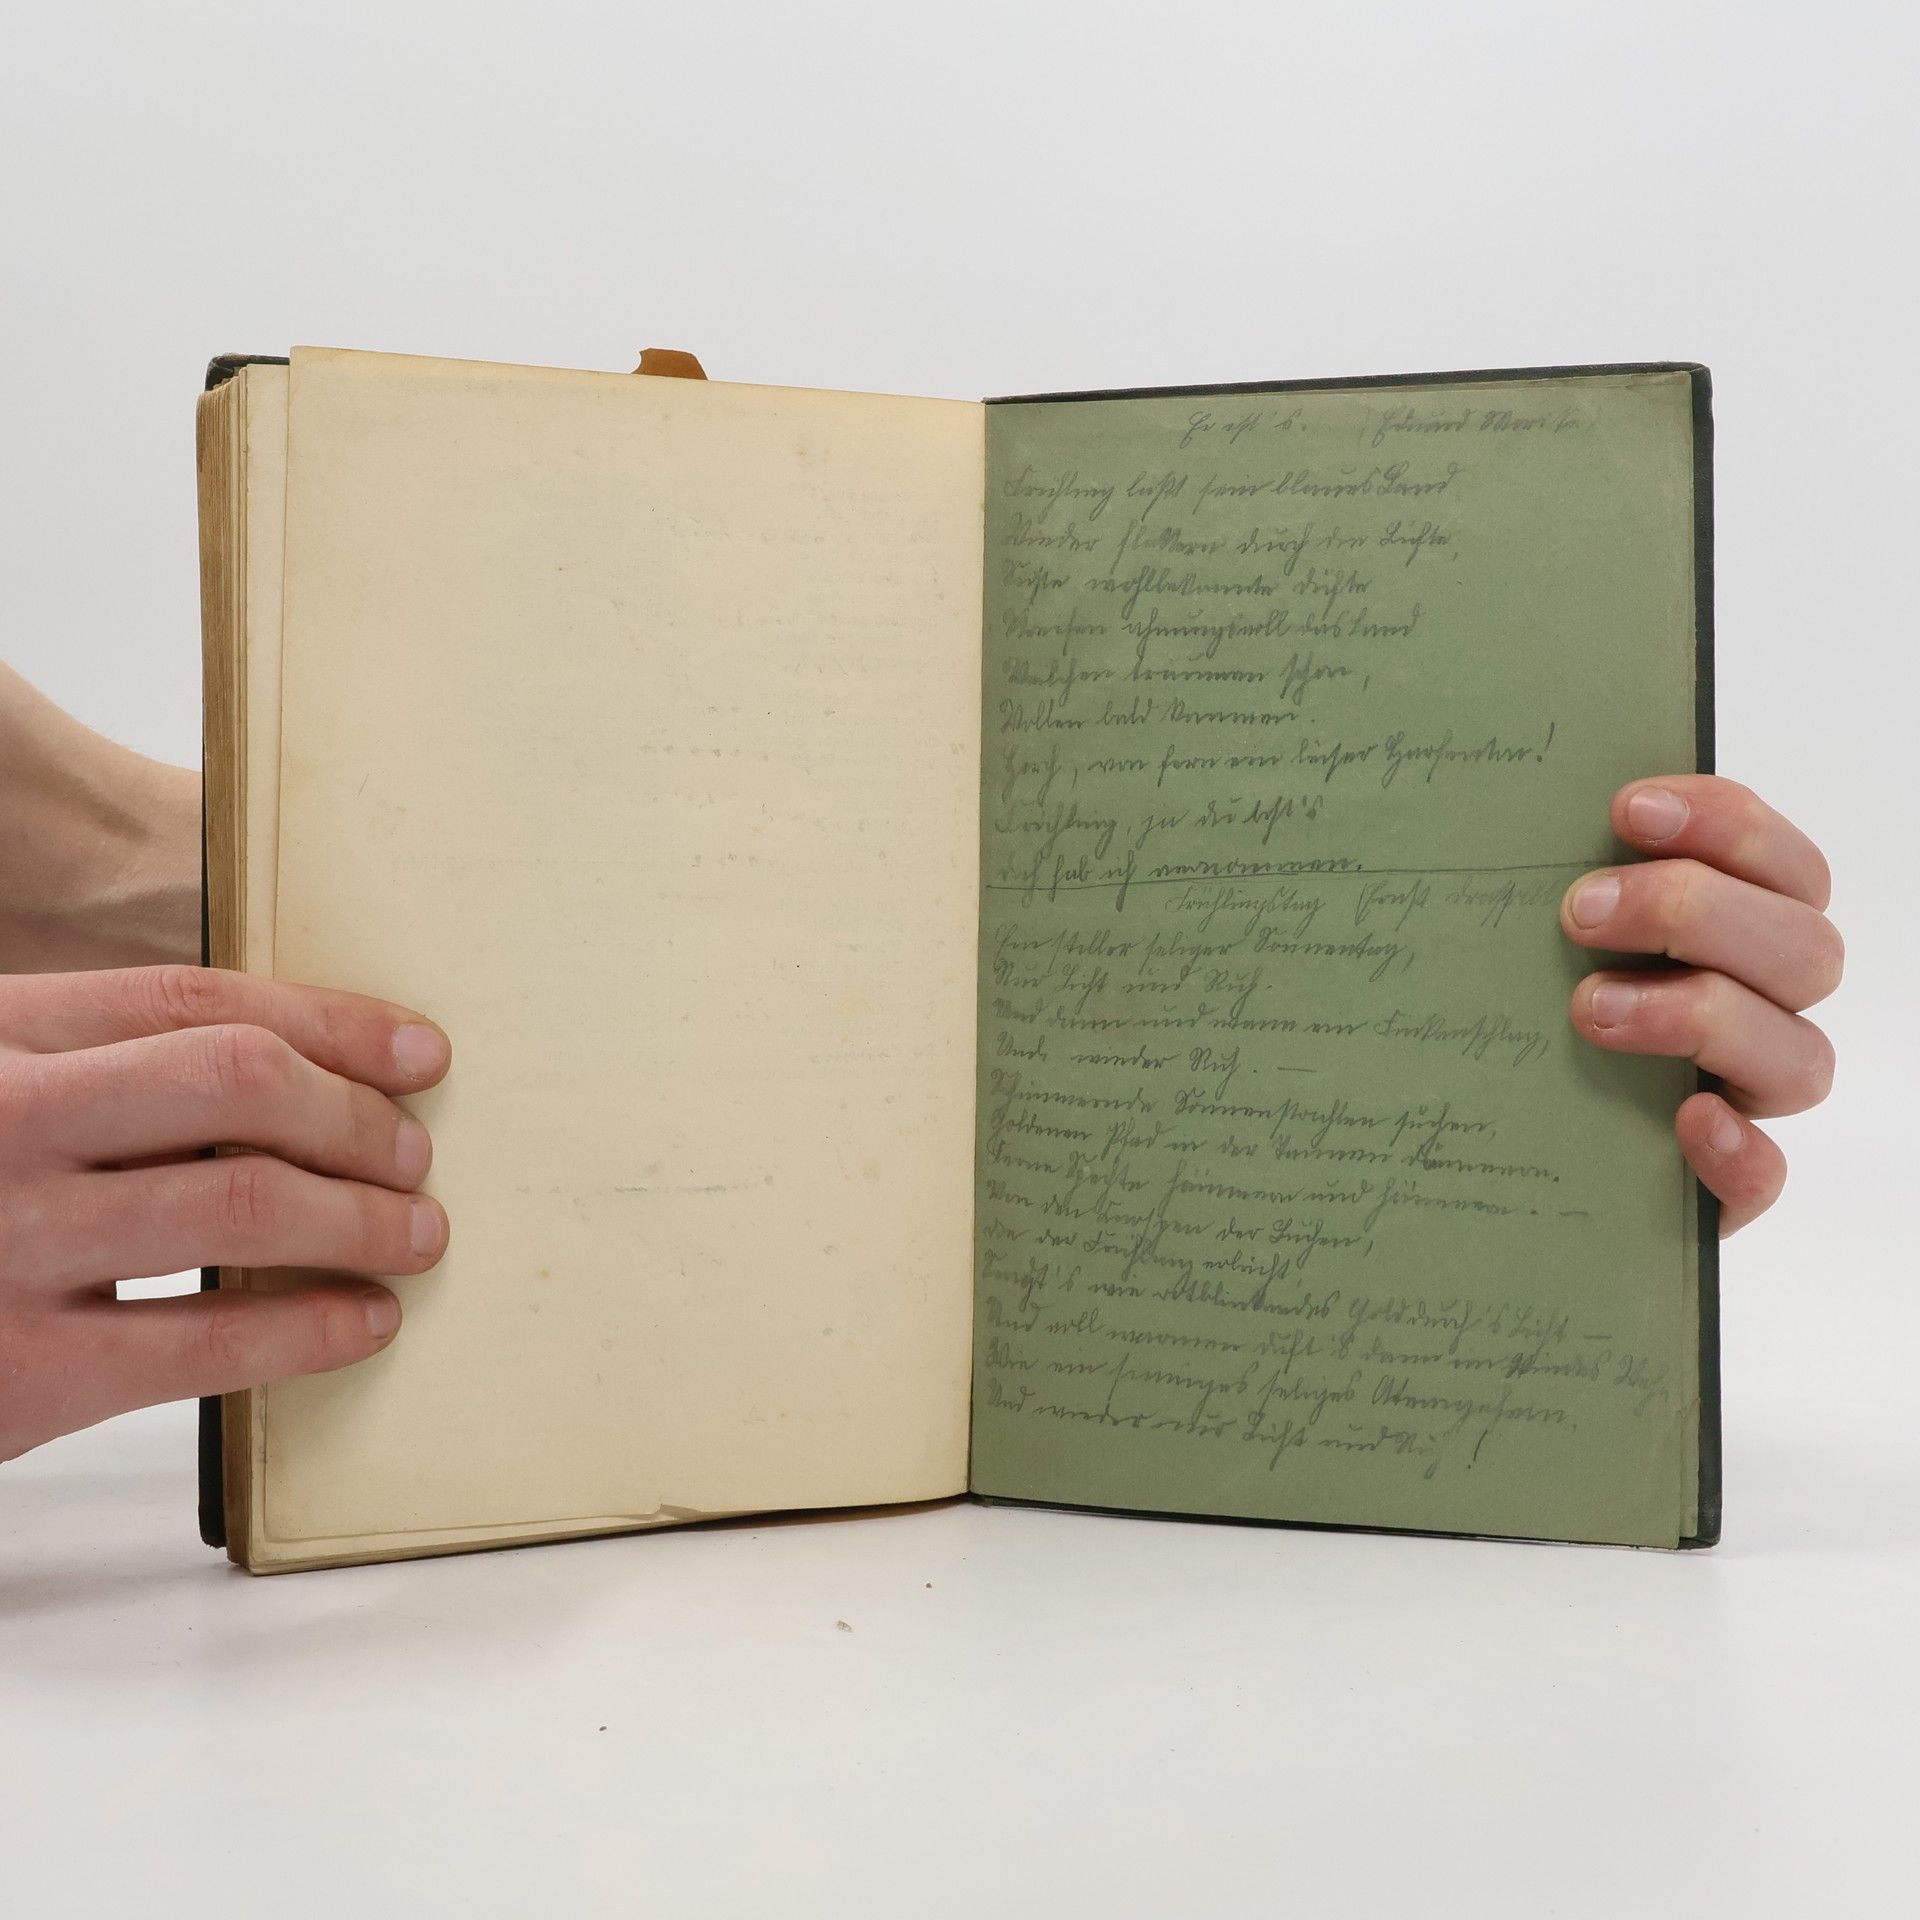 Er ist's. (Eduard Mörike)
Frühling läßt sein blaues Band
Wieder flattern durch die Lüfte,
Süße wohlbekannte Düfte
Streifen ahnungsvoll das Land
Veilchen träumen schon,
Wollen bald kommen.
Horch, von fern ein leiser Harfenton!
Frühling, ja du bist's
Dich hab ich vernommen.
Frühlingstag (Ernst
Ein stiller seliger Sonnentag,
Nur Licht und Ruh.
Und dann und wann ein Finkenschlag,
Und wieder Ruh. —
Schimmernde Sonnenstrahlen suchen,
Goldenen Pfad in der Tannen dämmern.
Ferne Spechte hämmern und hämmern. —
Von den Knospen der Buchen,
die der Frühling erbricht
's wie rotblinkendes Gold durch's Licht —
Und voll warmen Duft's dann ein Windes Wehn
Wie ein sinniges seliges Atemgehen.
Und wieder nur Licht und Ruh!